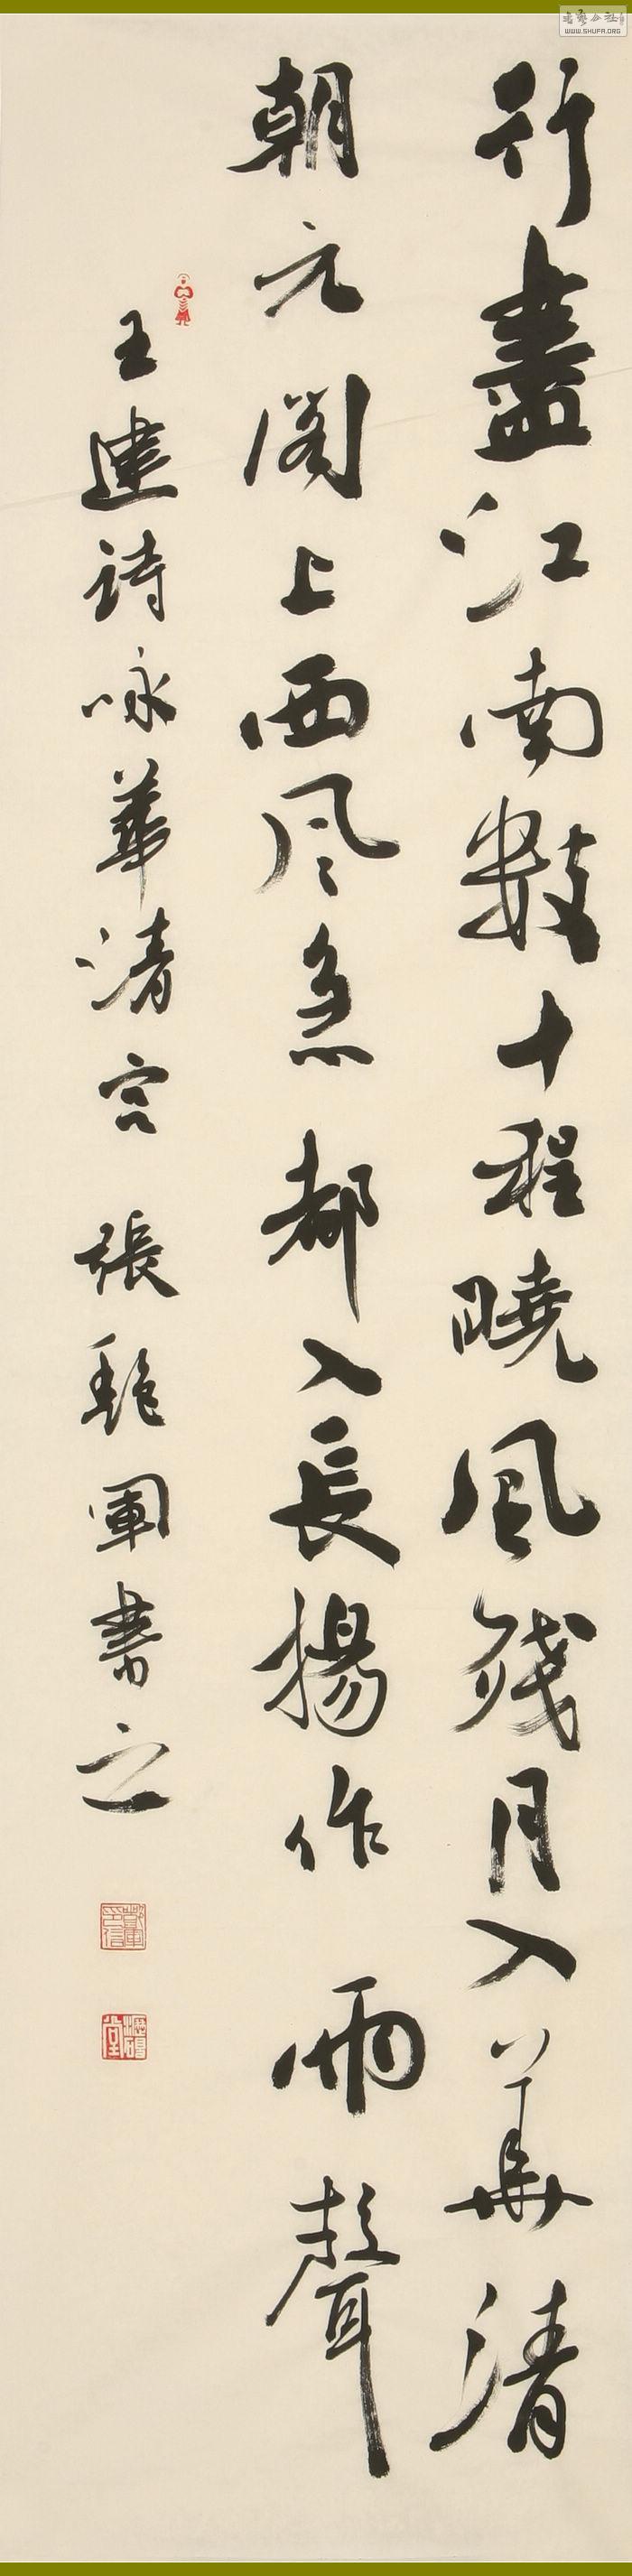 行盡江南數十程曉風殘月入華清
朝元閣上西风急都入長揚作雨聲
王建詩咏華清宫 張艶軍書之
书艺公社
WWW.SHUFA.ORG